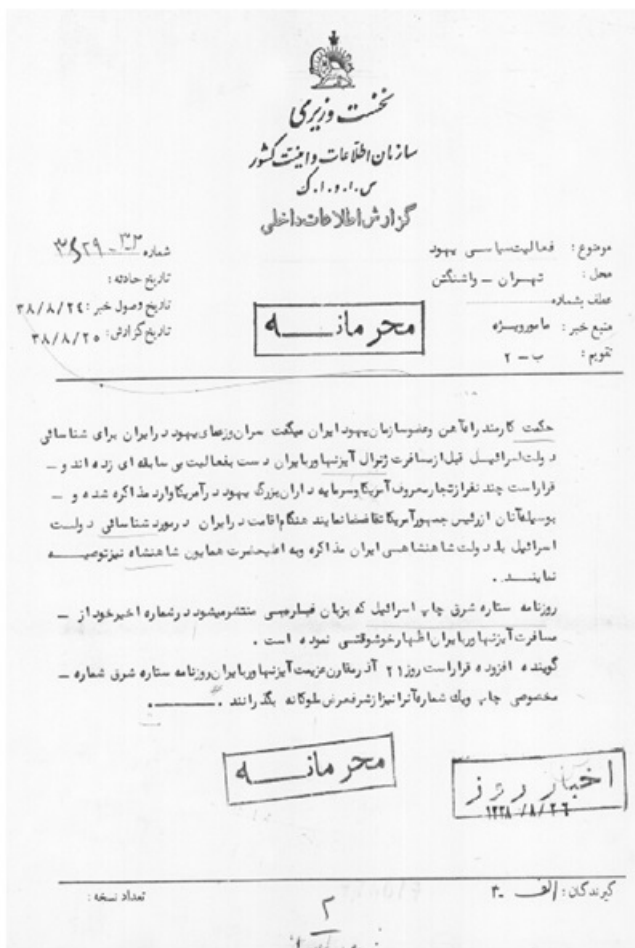 نخست وزیری
سازمان اطلاعات و امنیت کشور
س.ا.و.ا.ک
گزارش اطلاعات داخلی
موضوع : فعالیت سیاسی یهود
محل : تهران - واشنگتن
عطف بشماره
منبع خبر : مامور ویژه
تقویم : ب - ۲
شماره
تاریخ حادثه :
تاریخ وصول خبر : ۳۸/۸/۲٤
تاریخ گزارش : ۳۸/۸/۲۵
محرمانه
حکمت کارمند راه آهن وعضو سازمان یهود ایران میگفت سران وزعمای یهود در ایران برای شناسائی
دولت اسرائیل قبل از مسافرت ژنرال آیزنهاور بایران دست بفعالیت بی سابقه ای زده اند و -
قرار است چند نفر از تجار معروف آمریکا و سرمایه داران بزرگ یهود در آمریکا وارد مذاکره شده و -
بوسیله آنان از رئیس جمهور آمریکا تقاضا نمایند هنگام اقامت در ایران در مورد شناسائی دولت
اسرائیل با دولت شاهنشاهی ایران مذاکره و به اعلیحضرت همایون شاهنشاه نیز توصیه
نمایند .
روزنامه ستاره شرق چاپ اسرائیل که بزبان فارسی منتشر میشود در شماره اخیر خود از -
مسافرت آیزنهاور بایران اظهار خوشوقتی نموده است .
گوینده افزوده قرار است روز ۲۱ آذر مقارن عزیمت آیزنهاور بایران روزنامه ستاره شرق شماره -
مخصوصی چاپ ویک شماره آنرا نیز از شرفعرض ملوکانه بگذرانند .
محرمانه
اخبار روز
۱۳۳۸/۸/۲۶
گیرندگان : الف - ۳
تعداد نسخه :
۲